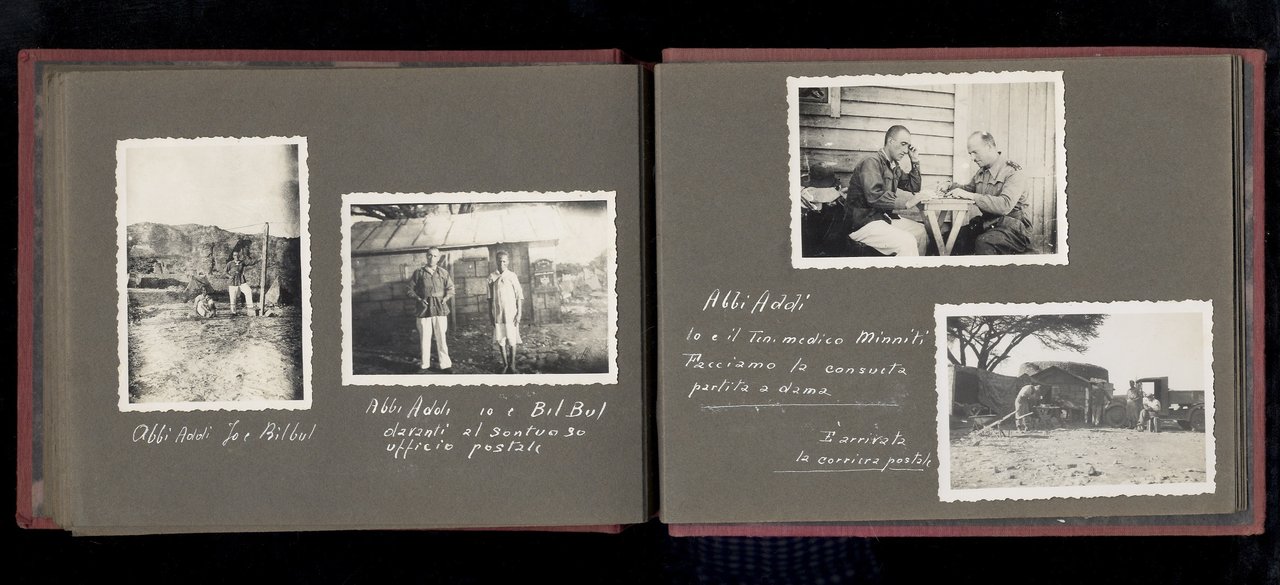 Abbi Addi Io e Bilbul
Abbi Addi io e Bil Bul
davanti al sontuoso
ufficio postale
Abbi Addi
Io e il Ten. medico Minniti
Facciamo la consueta
partita a dama
È arrivata
la corriera postale